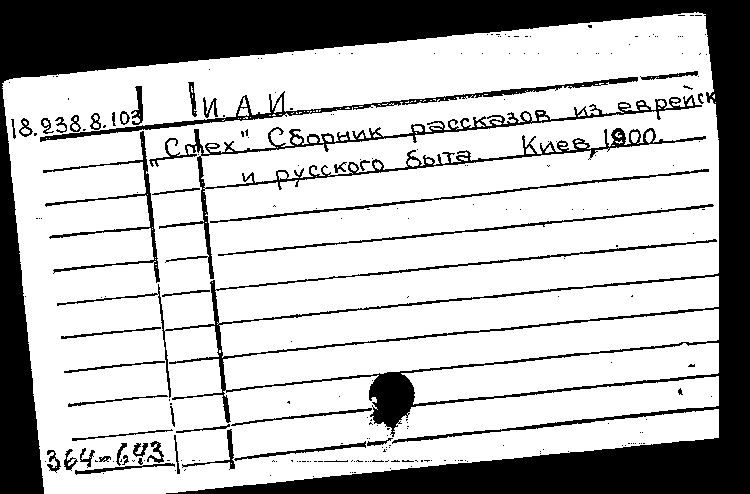 18.238.8.103 И. А.И.
„Смех". Сборник рассказов из еврейск
и русского быта. Киев, 1900.
364-643